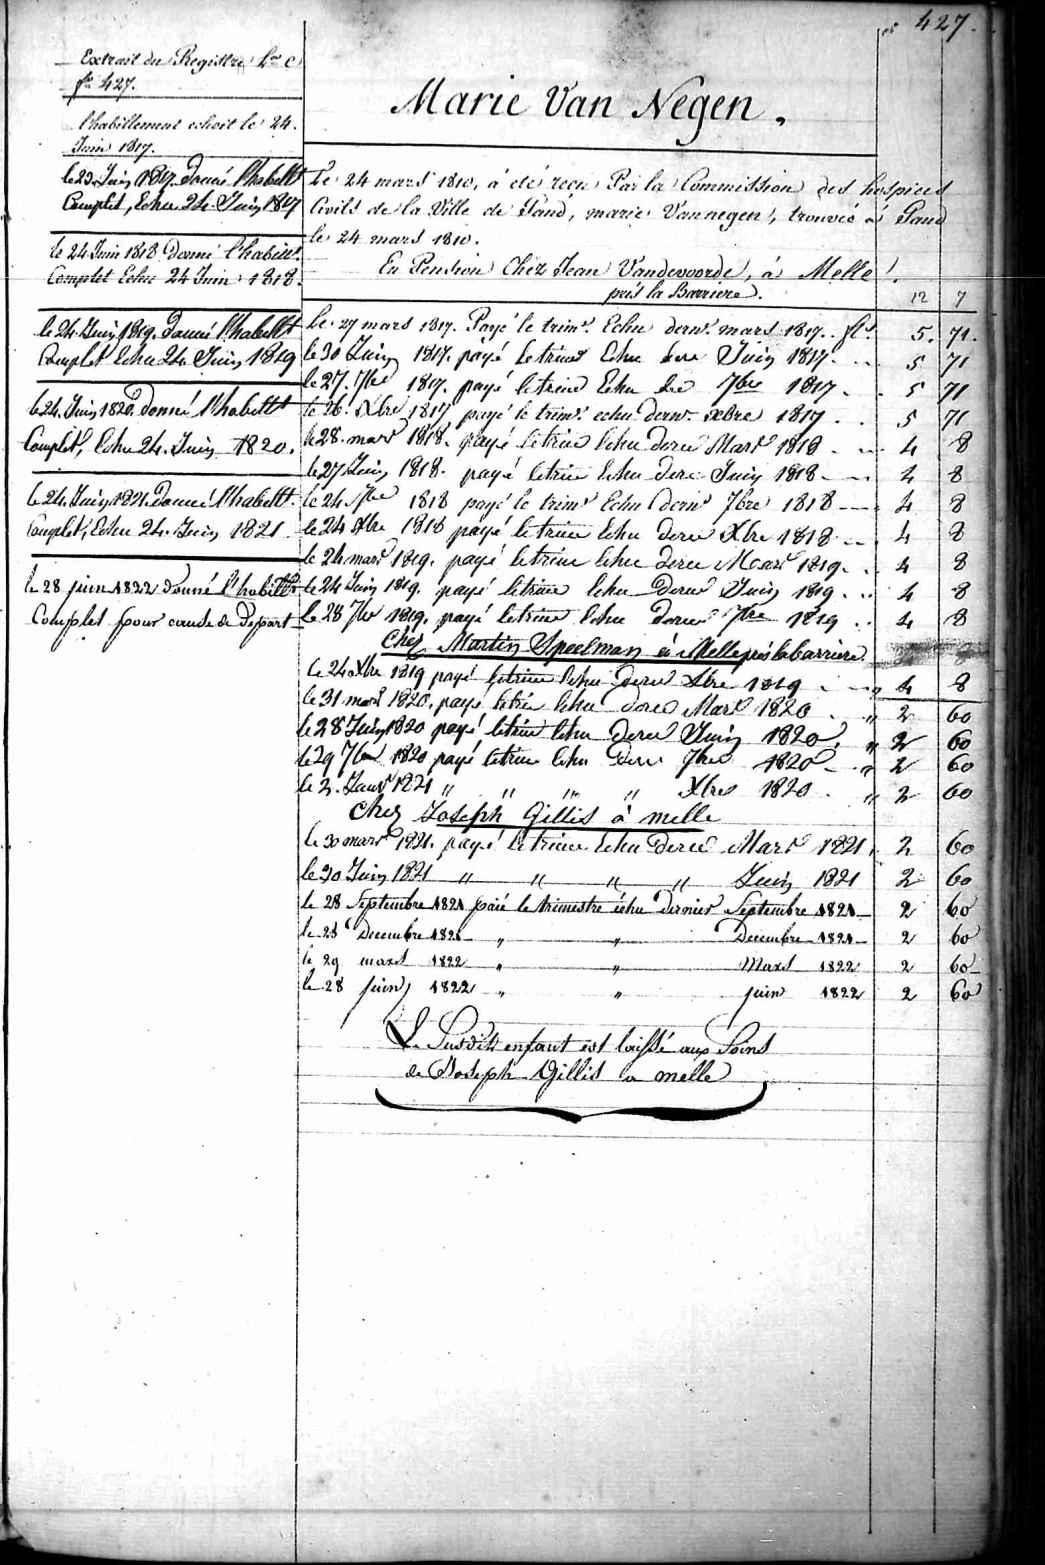 427.
Extrait du Registre Lre C
fo 427.
l'habillement echoit le 24.
Juin 1817.
le 23 Juin 1817 Donné l'habillt
Complet, Echu 24 Juin 1817
le 24 Juin 1818 Donné l'habillt.
Complet Echu 24 Juin 1818.
le 24 Juin 1819. Donné l'habillt
Complet Echu 24 Juin 1819
le 24 Juin 1820. Donné l'habillt
Complet, Echu 24. Juin 1820.
le 24 Juin 1821. Donné l'habillt.
Complet, Echu 24. Juin 1821
le 28 juin 1822 Donné l'habillt
Complet pour cause de Depart
Marie Van Negen.
Le 24 mars 1810, a été reçu Par la Commission des hospices
Civils de la Ville de Gand, marie Vannegen, trouvée à Gand
le 24 mars 1810.
En Pension Chez Jean Vandevoorde, à Melle.
près la Barriere.
12 7
Le 27 mars 1817. Payé le trimr. Echu dernr. mars 1817. fls. 5. 71.
le 30 Juin 1817. payé le trimr Echu dere Juin 1817 5 71
le 27. 7bre 1817. payé le trime Echu dre 7bre 1817 5 71
le 26. Xbre 1817 payé le trimr. echu dernr. xbre 1817 5 71
le 28. mars 1818. payé le trime Echu derne Mars 1818 4 8
le 27 Juin 1818. payé le trime Echu dere Juin 1818 4 8
le 24 7bre 1818 payé le trimr Echu dernr 7bre 1818 4 8
le 24 Xbre 1818 payé le trime Echu derne Xbre 1818 4 8
le 24 mars 1819. payé le trime Echu derne Mars 1819 4 8
le 24 Juin 1819. payé le trime Echu derne Juin 1819 4 8
le 28 7bre 1819. payé le trime Echu derne 7bre 1819 4 8
Chez Martin Speelman à Melle près la barriere.
le 24 Xbre 1819 payé le trime Echu derne Xbre 1819 " 4 8
le 31 mars 1820, payé le trie Echu derne Mars 1820 " 2 60
le 28 Juin 1820 payé le trie Echu derne Juin 1820 " 2 60
le 29 7bre 1820 payé le trime Echu derne 7bre 1820 " 2 60
le 2. Janvr 1821 " " " " Xbre 1820 " 2 60
Chez Joseph Gillis à melle
le 30 mars 1821. payé le trime Echu derne Mars 1821. 2 60
le 30 Juin 1821 " " " " Juin 1821 2 60
le 28 Septembre 1821 paié le trimestre échu Dernier Septembre 1821 2 60
le 28 Decembre 1821 " " Decembre 1821 2 60
le 29 mars 1822 " " Mars 1822 2 60
le 28 juin 1822 " " juin 1822 2 60
Le Susdit enfant est laissé aux Soins
de Joseph Gillis a melle